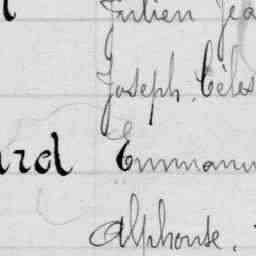 Julien Jea
Joseph. Céles
ard Emmanu
Alphonse.